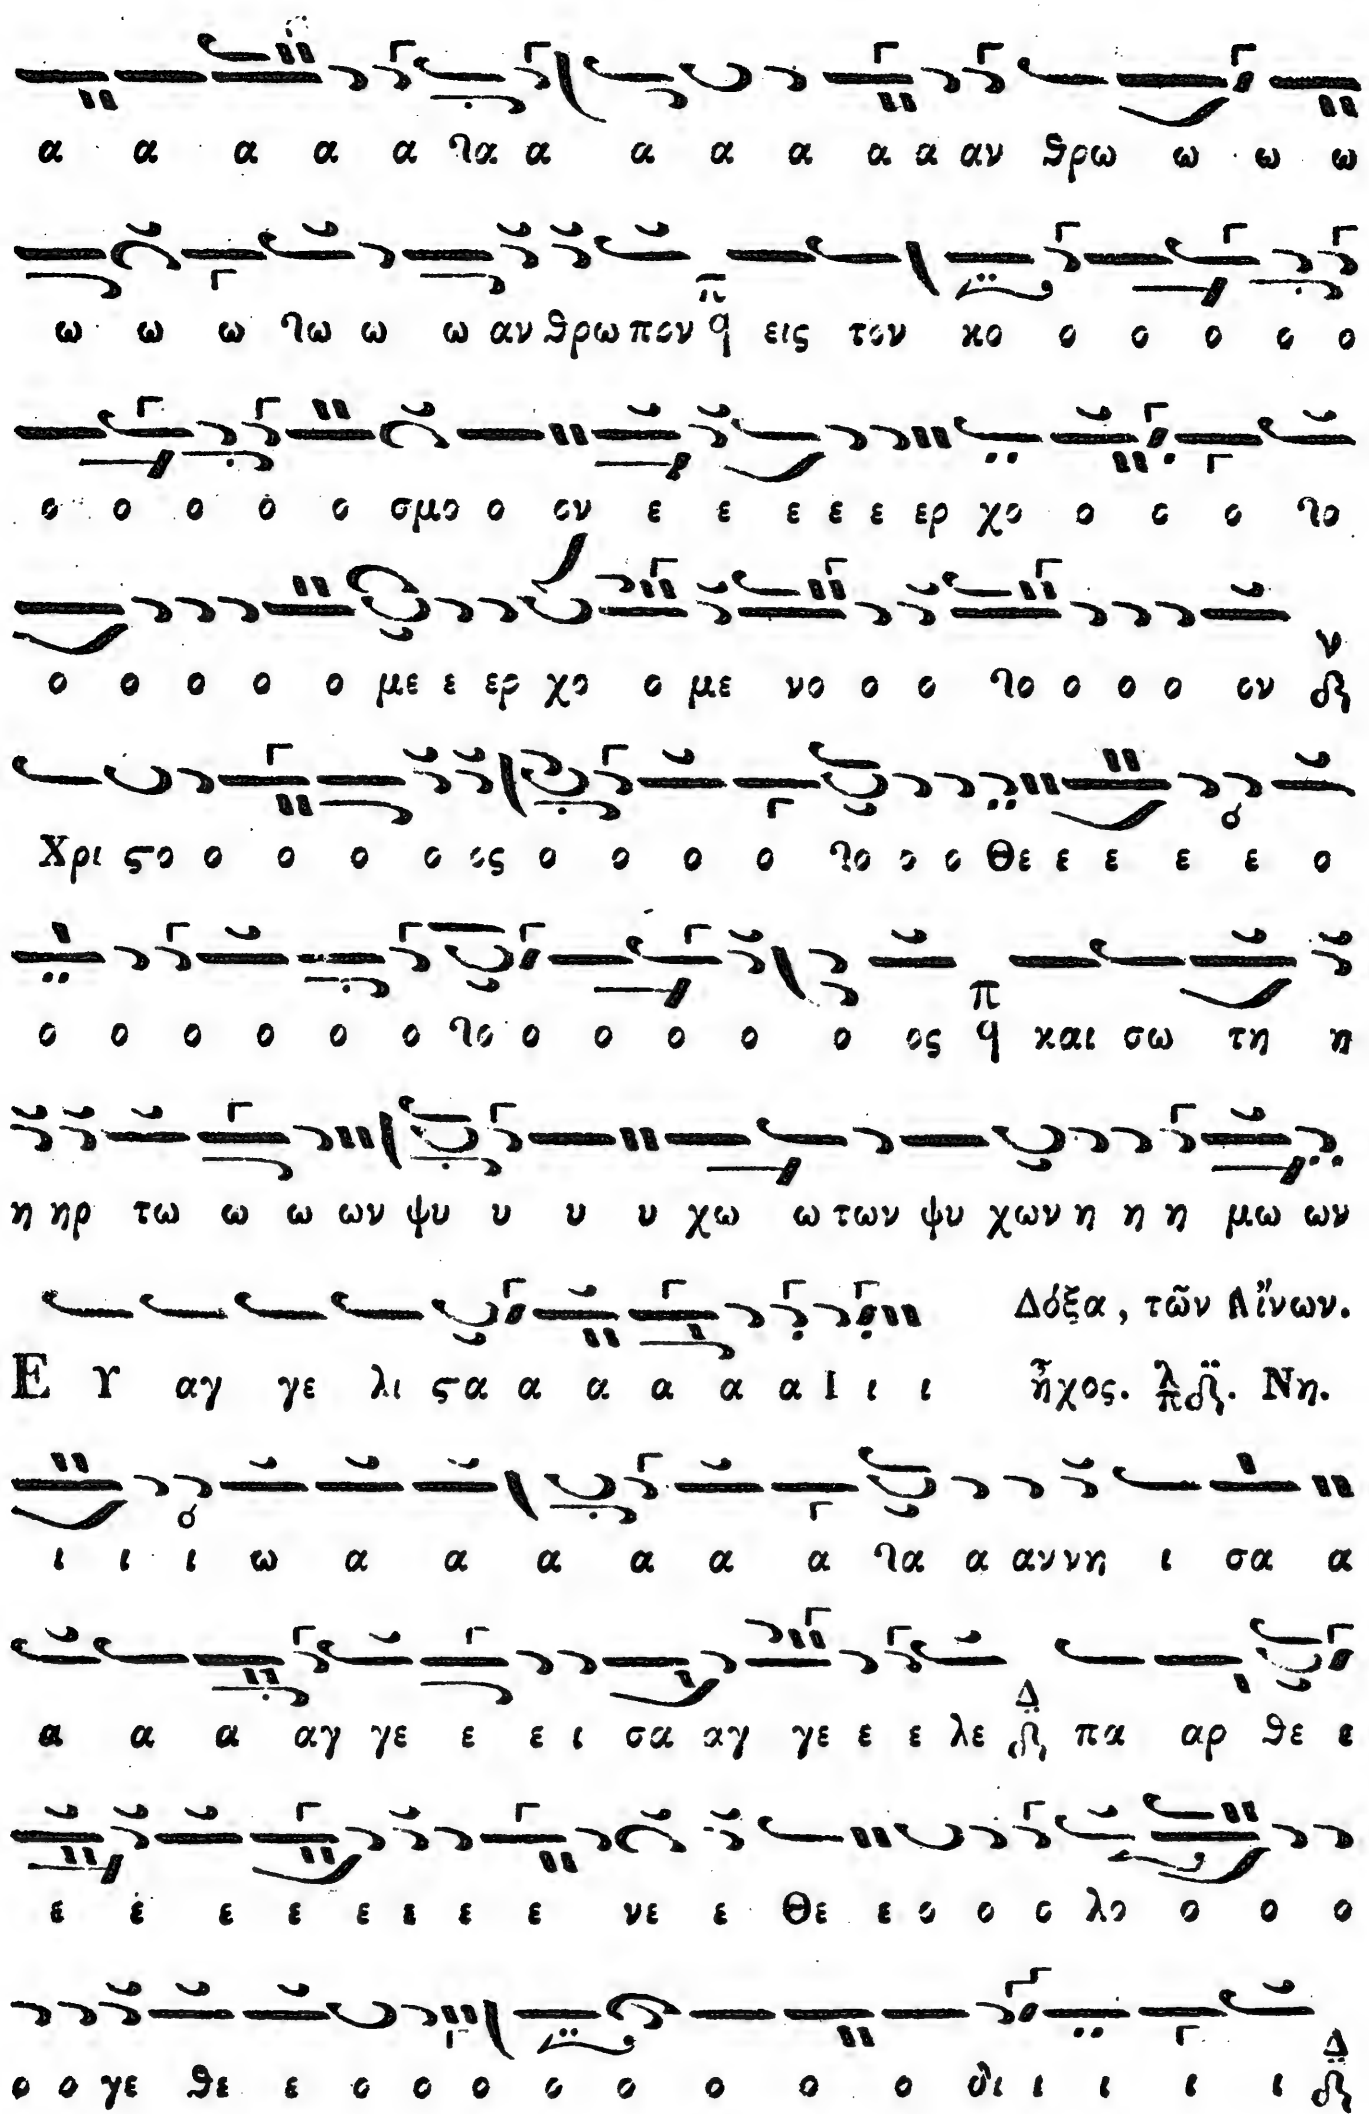 α α α α α ϡα α α α α α α αν θρω ω ω ω
ω ω ω ϡω ω ω αν θρω πον π̅ ϥ εις τον κο ο ο ο ο ο
ο ο ο ο ο σμο ο ον ε ε ε ε ε ερ χο ο ο ο ϡο
ο ο ο ο ο με ε ερ χο ο με νο ο ο ϡο ο ο ο ον ν
Χρι ςο ο ο ο ο ος ο ο ο ο ϡο ο ο Θε ε ε ε ε ο
ο ο ο ο ο ο ϡο ο ο ο ο ο ος π ϥ και σω τη η
η ηρ τω ω ω ων ψυ υ υ υ χω ω των ψυ χων η η η μω ων
Δόξα, τῶν Αἴνων.
Ε Υ αγ γε λι ςα α α α α α Ι ι ι ἦχος. λ π. Νη.
ι ι ι ω α α α α α α ϡα α αν νη ι σα α
α α α αγ γε ε ε ι σα αγ γε ε ε λε Δ πα αρ θε ε
ε ε ε ε ε ε ε ε νε ε Θε ε ο ο ο λο ο ο ο
ο ο γε θε ε ο ο ο ο ο ο ο ο δι ι ι ι ι Δ